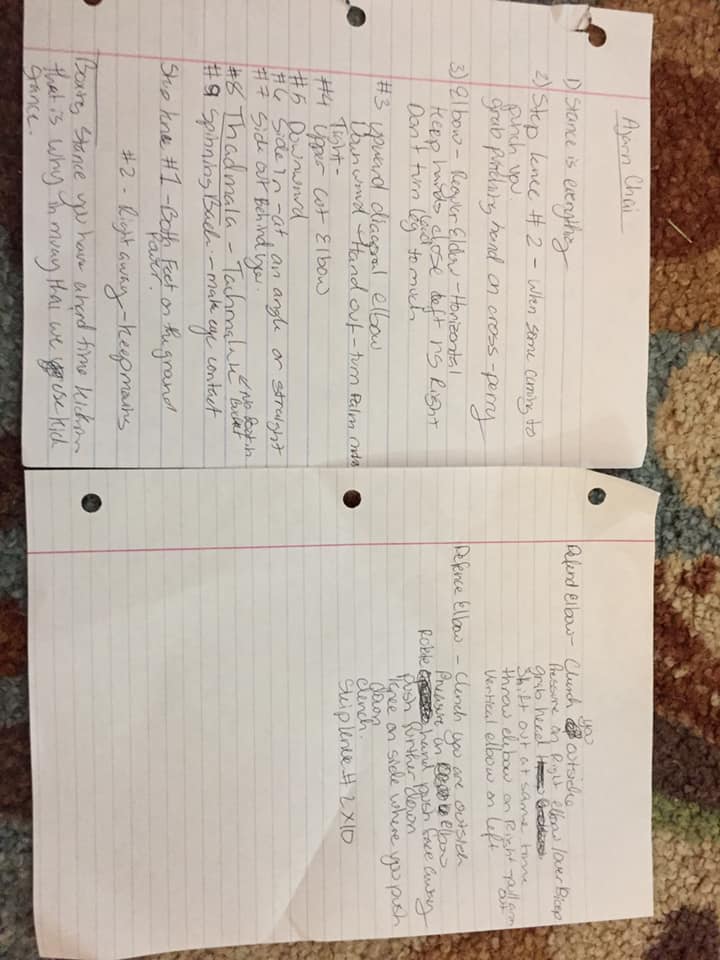 Ajarn Chai
1) Stance is everything
2) Step knee #2 - when some coming to
punch you.
grab punching hand on cross - parry
3) Elbow - Regular Elbow - Horizontal
Keep hands close left is Right
Don't turn leg to much
#3 upward diagonal elbow
Downward Hand out - turn Palm
Tight -
#4 Upper cut Elbow
#5 Downward
#6 Side in - at an angle or straight
#7 Side out Behind you.
#8 Thadmala - Tadmalue
#9 Spinning Back - make eye contact
Skip knee #1 - Both Feet on the ground
Power.
#2 - Right away - Keep moving
Boxers Stance you have a hard time kicking
that is why in muay thai we use kick
stance.
Defend Elbow - Clench you outside
Pressure on Right elbow/over Bicep
grab head
Shift out at same time
throw elbow on Right - pull arm out
Vertical elbow on left
Defence Elbow - Clench you are outside
Pressure on elbow
hand push face away
push further down
Knee on side where you push
down
clench.
Skip knee #2 x10